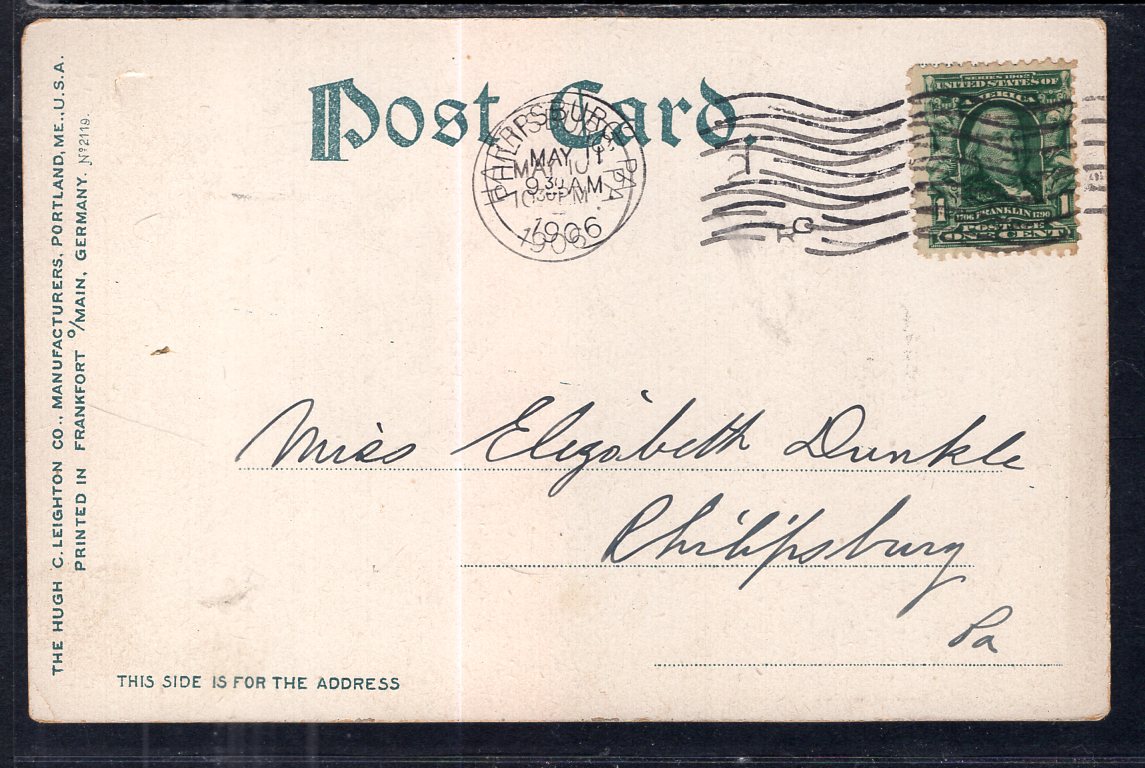 Post Card.
HARRISBURG PA
MAY 11
9 30 AM
1906
PHILIPSBURG PA
MAY 10
10 PM
1906
SERIES 1902
UNITED STATES OF
AMERICA
1 1706 FRANKLIN 1790 1
POSTAGE
ONE CENT
THE HUGH C. LEIGHTON CO., MANUFACTURERS, PORTLAND, ME., U.S.A.
PRINTED IN FRANKFORT o/MAIN, GERMANY. No 2119.
Miss Elizabeth Dunkle
Philipsburg
Pa
THIS SIDE IS FOR THE ADDRESS